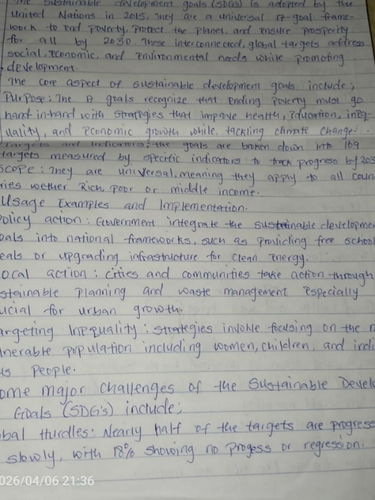 The sustainable development goals (SDGs) is adopted by the
United Nations in 2015. They are a universal 17-goal frame-
work to End poverty, protect the planet, and ensure prosperity
for all by 2030. These interconnected, global targets address
social, Economic, and Environmental needs while promoting
development.
The core aspect of sustainable development goals include;
Purpose: The 17 goals recognize that Ending poverty must go
hand-in-hand with strategies that improve health, Education, ineq-
uality, and Economic growth while tackling climate change.
Targets and indicators: the goals are broken down into 169
targets measured by specific indicators to track progress by 2030
scope: They are universal, meaning they apply to all coun
ries wether Rich, poor or middle income.
Usage Examples and Implementation.
olicy action: Government integrate the sustainable developmen
oals into national frameworks, such as providing free school
eals or upgrading infrastructure for clean Energy.
ocal action: cities and communities take action through
stainable planning and waste management Especially
ucial for urban growth.
argeting Inequality: strategies involve focusing on the m
lnerable population including women, children, and indi
us people.
ome major challenges of the Sustainable Devel
Goals (SDG's) include;
obal Hurdles: Nearly half of the targets are progress
slowly, with 18% showing no progess or regression.
026/04/06 21:36